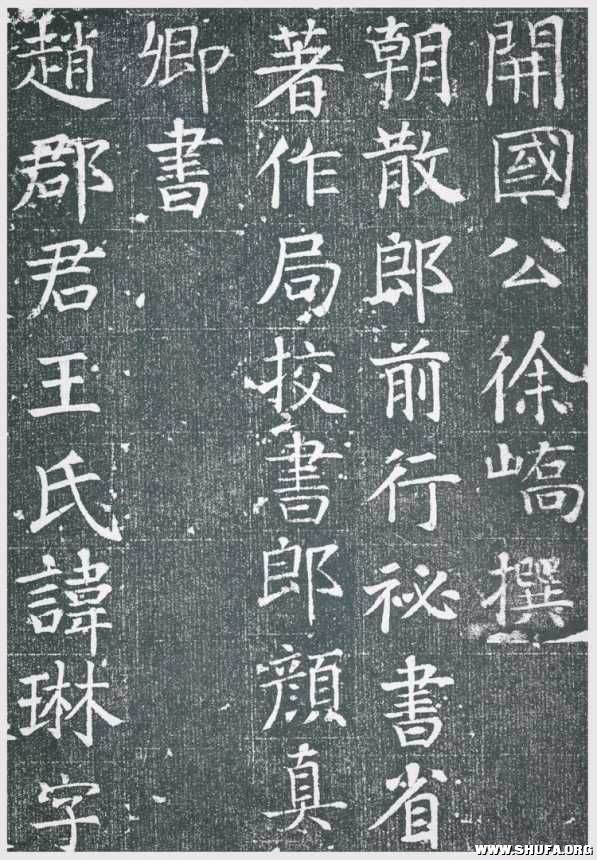 開國公徐嶠撰
朝散郎前行祕書省
著作局挍書郎顏真
卿書
趙郡君王氏諱琳字
WWW.SHUFA.ORG